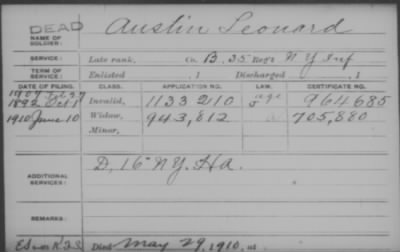 DEAD
NAME OF SOLDIER: Austin Leonard
SERVICE: Late rank, Co. B. 35 Reg't N Y Inf
TERM OF SERVICE: Enlisted , 1 Discharged , 1
DATE OF FILING. CLASS. APPLICATION NO. LAW. CERTIFICATE NO.
1907
1892 Oct 1 Invalid, 1133210 age 964685
1910 June 10 Widow, 943,812 705,880
Minor,
ADDITIONAL SERVICES: D, 16" NY. HA.
REMARKS:
Died May 29, 1910, at